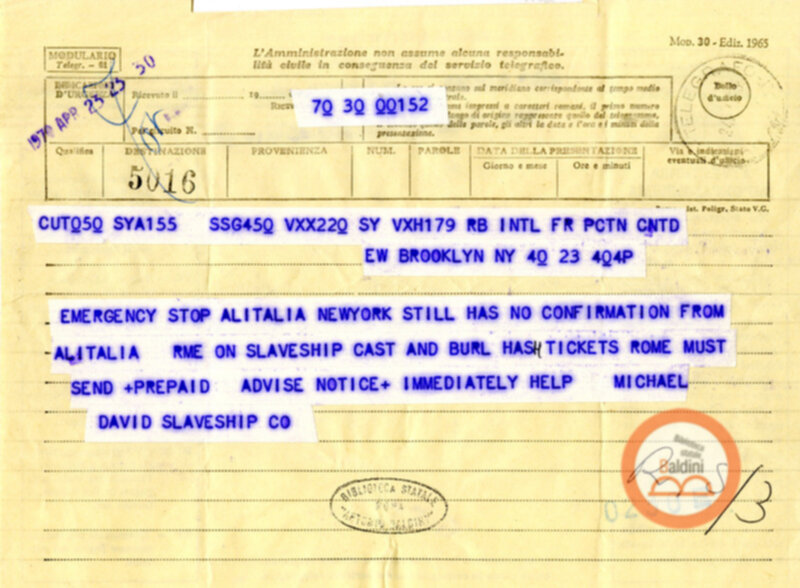 MODULARIO
Telegr. - 61
L'Amministrazione non assume alcuna responsabi-
lità civile in conseguenza del servizio telegrafico.
Mod. 30 - Ediz. 1965
INDICAZIONI
D'URGENZA
Ricevuto il 19
1970 APR 23 23 30
70 30 00152
Per circuito N.
Bollo
d'ufficio
Qualifica
DESTINAZIONE
PROVENIENZA
NUM.
PAROLE
DATA DELLA PRESENTAZIONE
Giorno e mese
Ore e minuti
Via e indicazioni
eventuali d'ufficio
5016
Ist. Poligr. Stato V.C.
CUT050 SYA155 SSG450 VXX220 SY VXH179 RB INTL FR PCTN CNTD
EW BROOKLYN NY 40 23 404P
EMERGENCY STOP ALITALIA NEWYORK STILL HAS NO CONFIRMATION FROM
ALITALIA RME ON SLAVESHIP CAST AND BURL HASH TICKETS ROME MUST
SEND +PREPAID ADVISE NOTICE+ IMMEDIATELY HELP MICHAEL
DAVID SLAVESHIP CO
Biblioteca
statale
Baldini
BIBLIOTECA STATALE
ROMA
"ANTONIO BALDINI"
/3